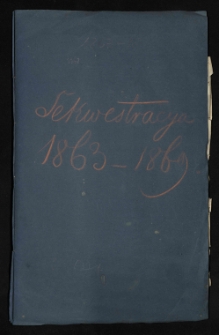 Sekwestracya
1863–1869